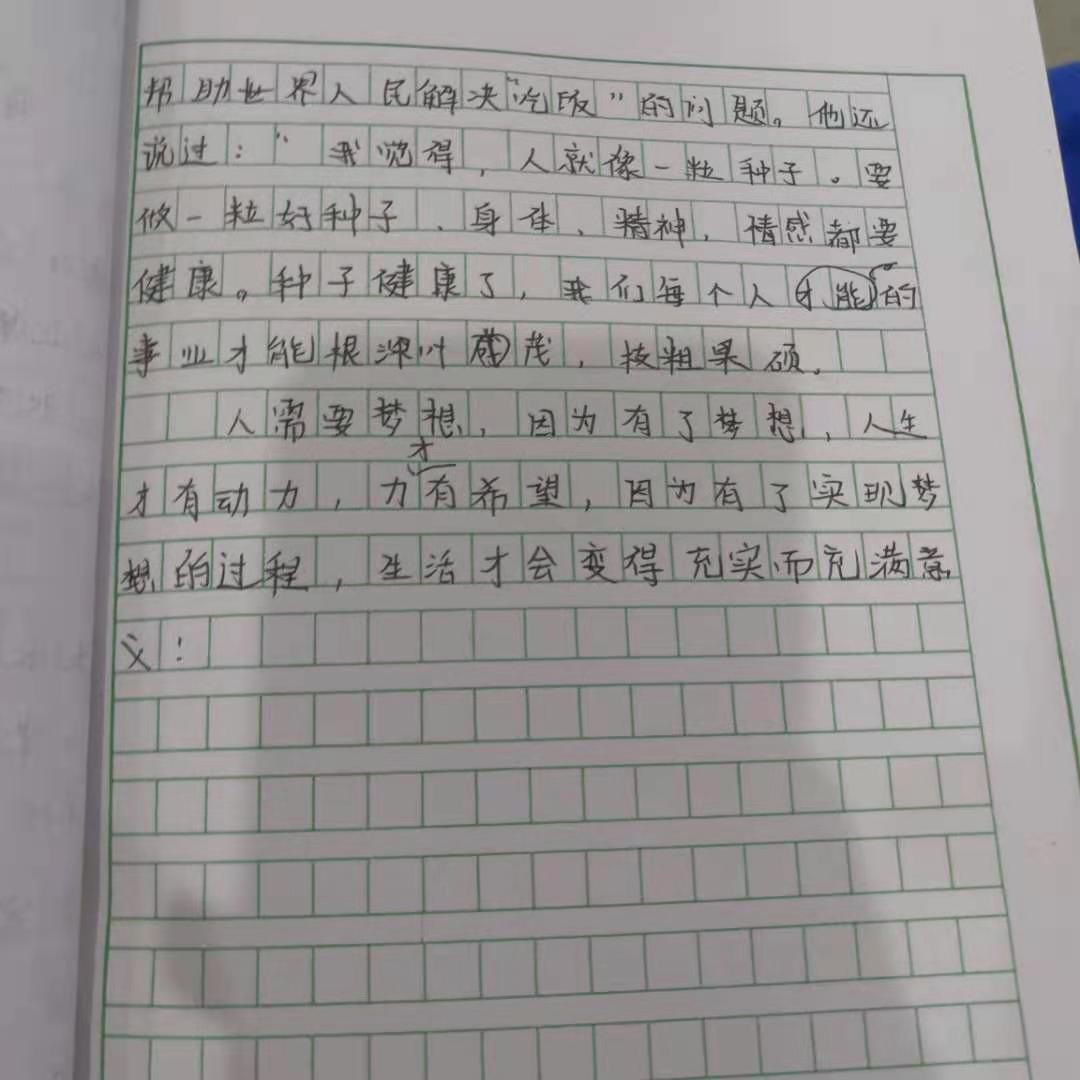 帮助世界人民解决“吃饭”的问题。他还
说过：“我觉得，人就像一粒种子。要
做一粒好种子、身体、精神，情感都要
健康。种子健康了，我们每个人的
事业才能根深叶茂，枝粗果硕。
人需要梦想，因为有了梦想，人生
才有动力，才有希望，因为有了实现梦
想的过程，生活才会变得充实而充满意
义！